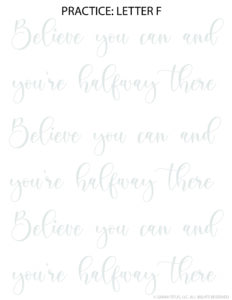 PRACTICE: LETTER F
Believe you can and
you're halfway there
Believe you can and
you're halfway there
Believe you can and
you're halfway there